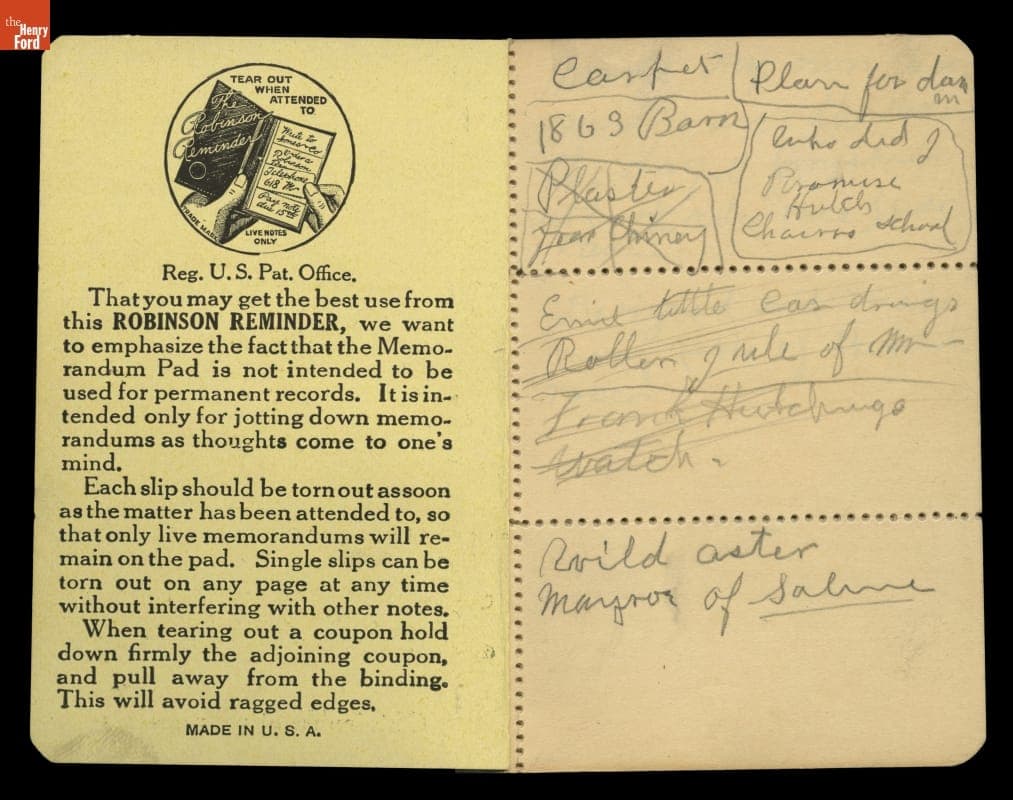 the
Henry
Ford
TEAR OUT
WHEN
ATTENDED
TO
The
Robinson
Reminder
618 M
Pay note
due 15th
TRADE MARK
LIVE NOTES
ONLY
Reg. U. S. Pat. Office.
That you may get the best use from
this ROBINSON REMINDER, we want
to emphasize the fact that the Memo-
randum Pad is not intended to be
used for permanent records. It is in-
tended only for jotting down memo-
randums as thoughts come to one's
mind.
Each slip should be torn out as soon
as the matter has been attended to, so
that only live memorandums will re-
main on the pad. Single slips can be
torn out on any page at any time
without interfering with other notes.
When tearing out a coupon hold
down firmly the adjoining coupon,
and pull away from the binding.
This will avoid ragged edges.
MADE IN U. S. A.
Carpet
1863 Barn
Plaster
Plan for dam
who did
Promise
Hutch
school
little Car
rule of
Frank Hutchings
watch.
Wild aster
Mayror of Saline